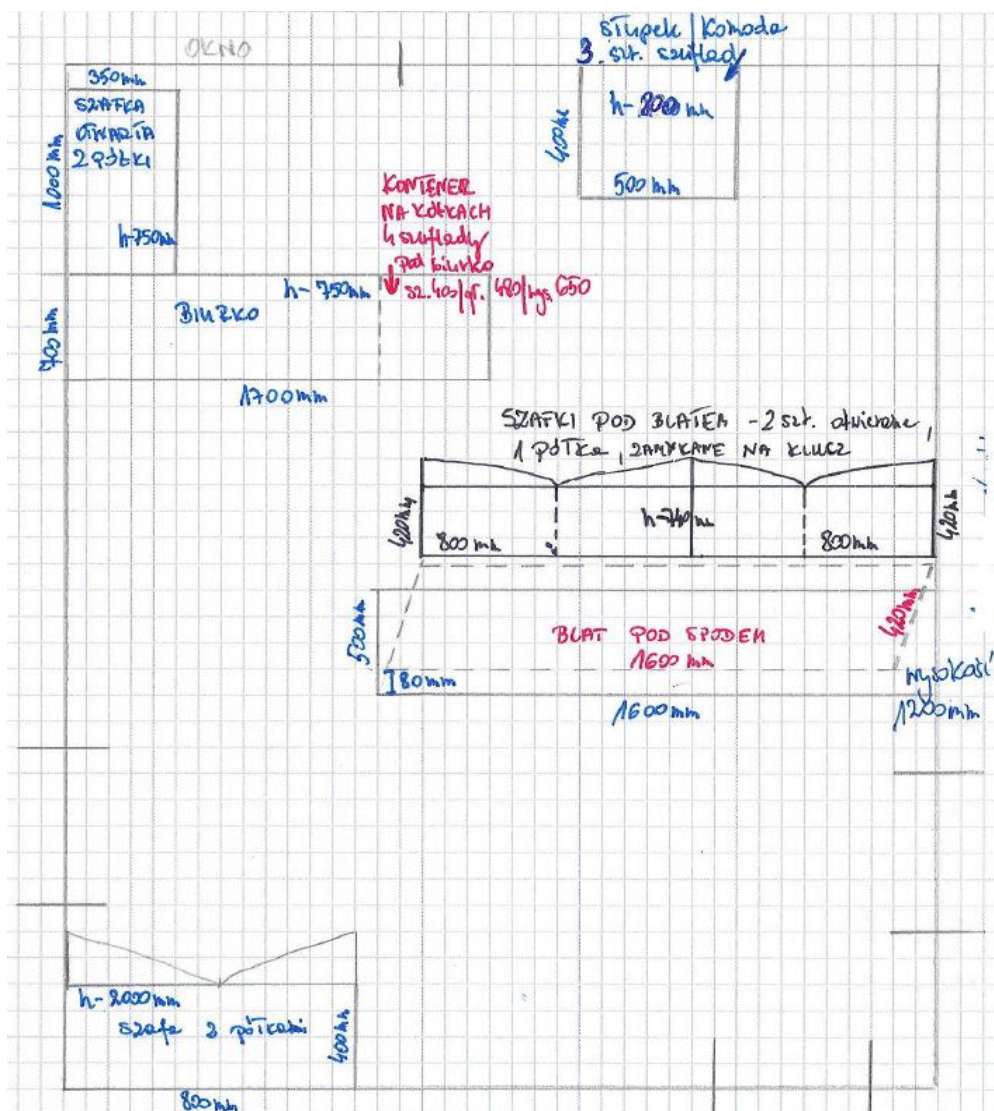 OKNO
słupek / Komoda
3. szt. szuflady
350mm
SZAFKA
OTWARTA
2 PÓŁKI
1000 mm
h-750mm
h- 800 mm
400mm
500 mm
KONTENER
NA KÓŁKACH
4 szuflady
Pod biurko
sz. 400/gł. 480/wys. 650
h- 750mm
BIURKO
700 mm
1700 mm
SZAFKI POD BLATEM - 2 szt. otwierane,
1 PÓŁKA, ZAMYKANE NA KLUCZ
420mm
h-740mm
420mm
800 mm
800 mm
500mm
BLAT POD SPODEM
1600 mm
420mm
80mm
wysokość
1600 mm
1200 mm
h- 2000 mm
szafa z półkami
400mm
800 mm